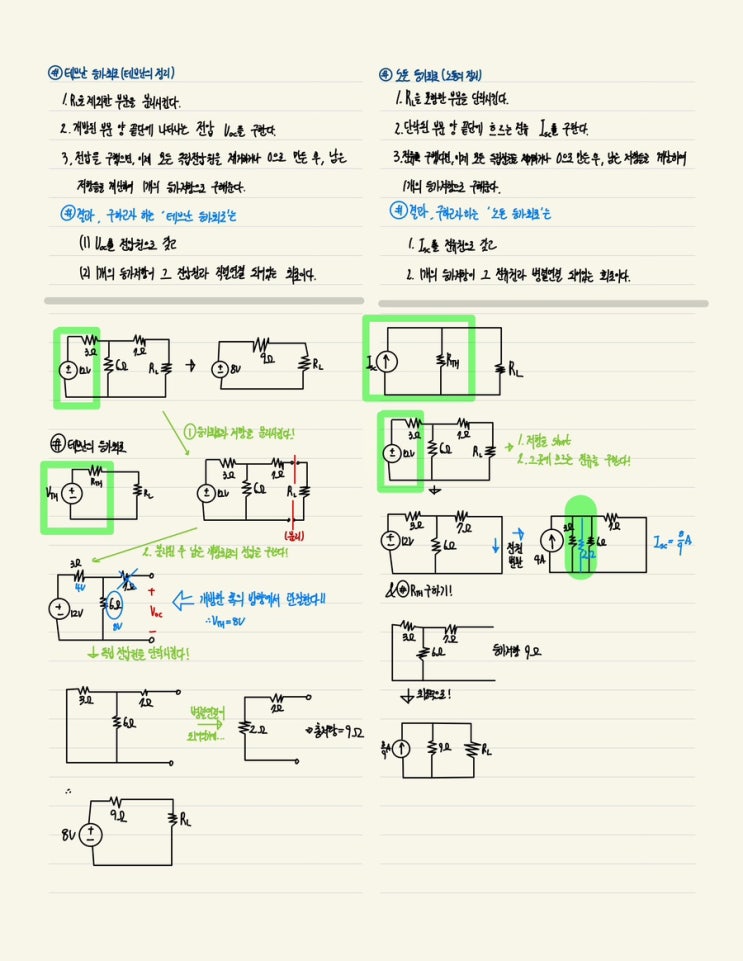 # 테브난 등가회로 (테브난의 정리)
1. RL을 제외한 부분을 분리시킨다.
2. 개방된 부분 양 끝단에 나타나는 전압 Voc를 구한다.
3. 전압을 구했으면, 이제 모든 독립전압원을 제거하거나 0으로 만든 후, 남은
저항들을 계산하여 1개의 등가저항으로 구해준다.
# 결과, 구하고자 하는 '테브난 등가회로'는
(1) Voc를 전압원으로 갖고
(2) 1개의 등가저항이 그 전압원과 직렬연결 되어있는 회로이다.
3Ω 7Ω
12V 6Ω RL
→
9Ω
8V RL
① 등가회로와 저항을 분리시킨다!
# 테브난의 등가회로
RTH
VTH RL
3Ω 7Ω
12V 6Ω RL
(분리)
2. 분리된 후 남은 개방회로의 전압을 구한다!
3Ω
4V 7Ω
12V 6Ω
8V
+
Voc
-
개방한 쪽의 방향에서 관찰한다!!
∴ VTH = 8V
↓ 독립 전압원을 단락시킨다!
3Ω 7Ω
6Ω
병렬연결이
7Ω
2Ω
총저항 = 9Ω
∴
9Ω
8V RL
# 노튼 등가회로 (노튼의 정리)
1. RL을 포함한 부분을 단락시킨다.
2. 단락된 부분 양 끝단에 흐르는 전류 Isc를 구한다.
3. 전류를 구했다면, 이제 모든 독립전원을 제거하거나 0으로 만든 후, 남은 저항들을 계산하여
1개의 등가저항으로 구해준다.
# 결과, 구하고자 하는 '노튼 등가회로'는
1. Isc를 전류원으로 갖고
2. 1개의 등가저항이 그 전류원과 병렬연결 되어있는 회로이다.
Isc RTH RL
3Ω 7Ω
12V 6Ω RL
1. 저항을 short
2. 그곳에 흐르는 전류를 구한다!
3Ω 7Ω
12V 6Ω
전원
변환
3Ω 6Ω 7Ω
2Ω
4A
Isc = 8/9 A
RTH 구하기!
3Ω 7Ω
6Ω
등가저항 9Ω
8/9A 9Ω RL